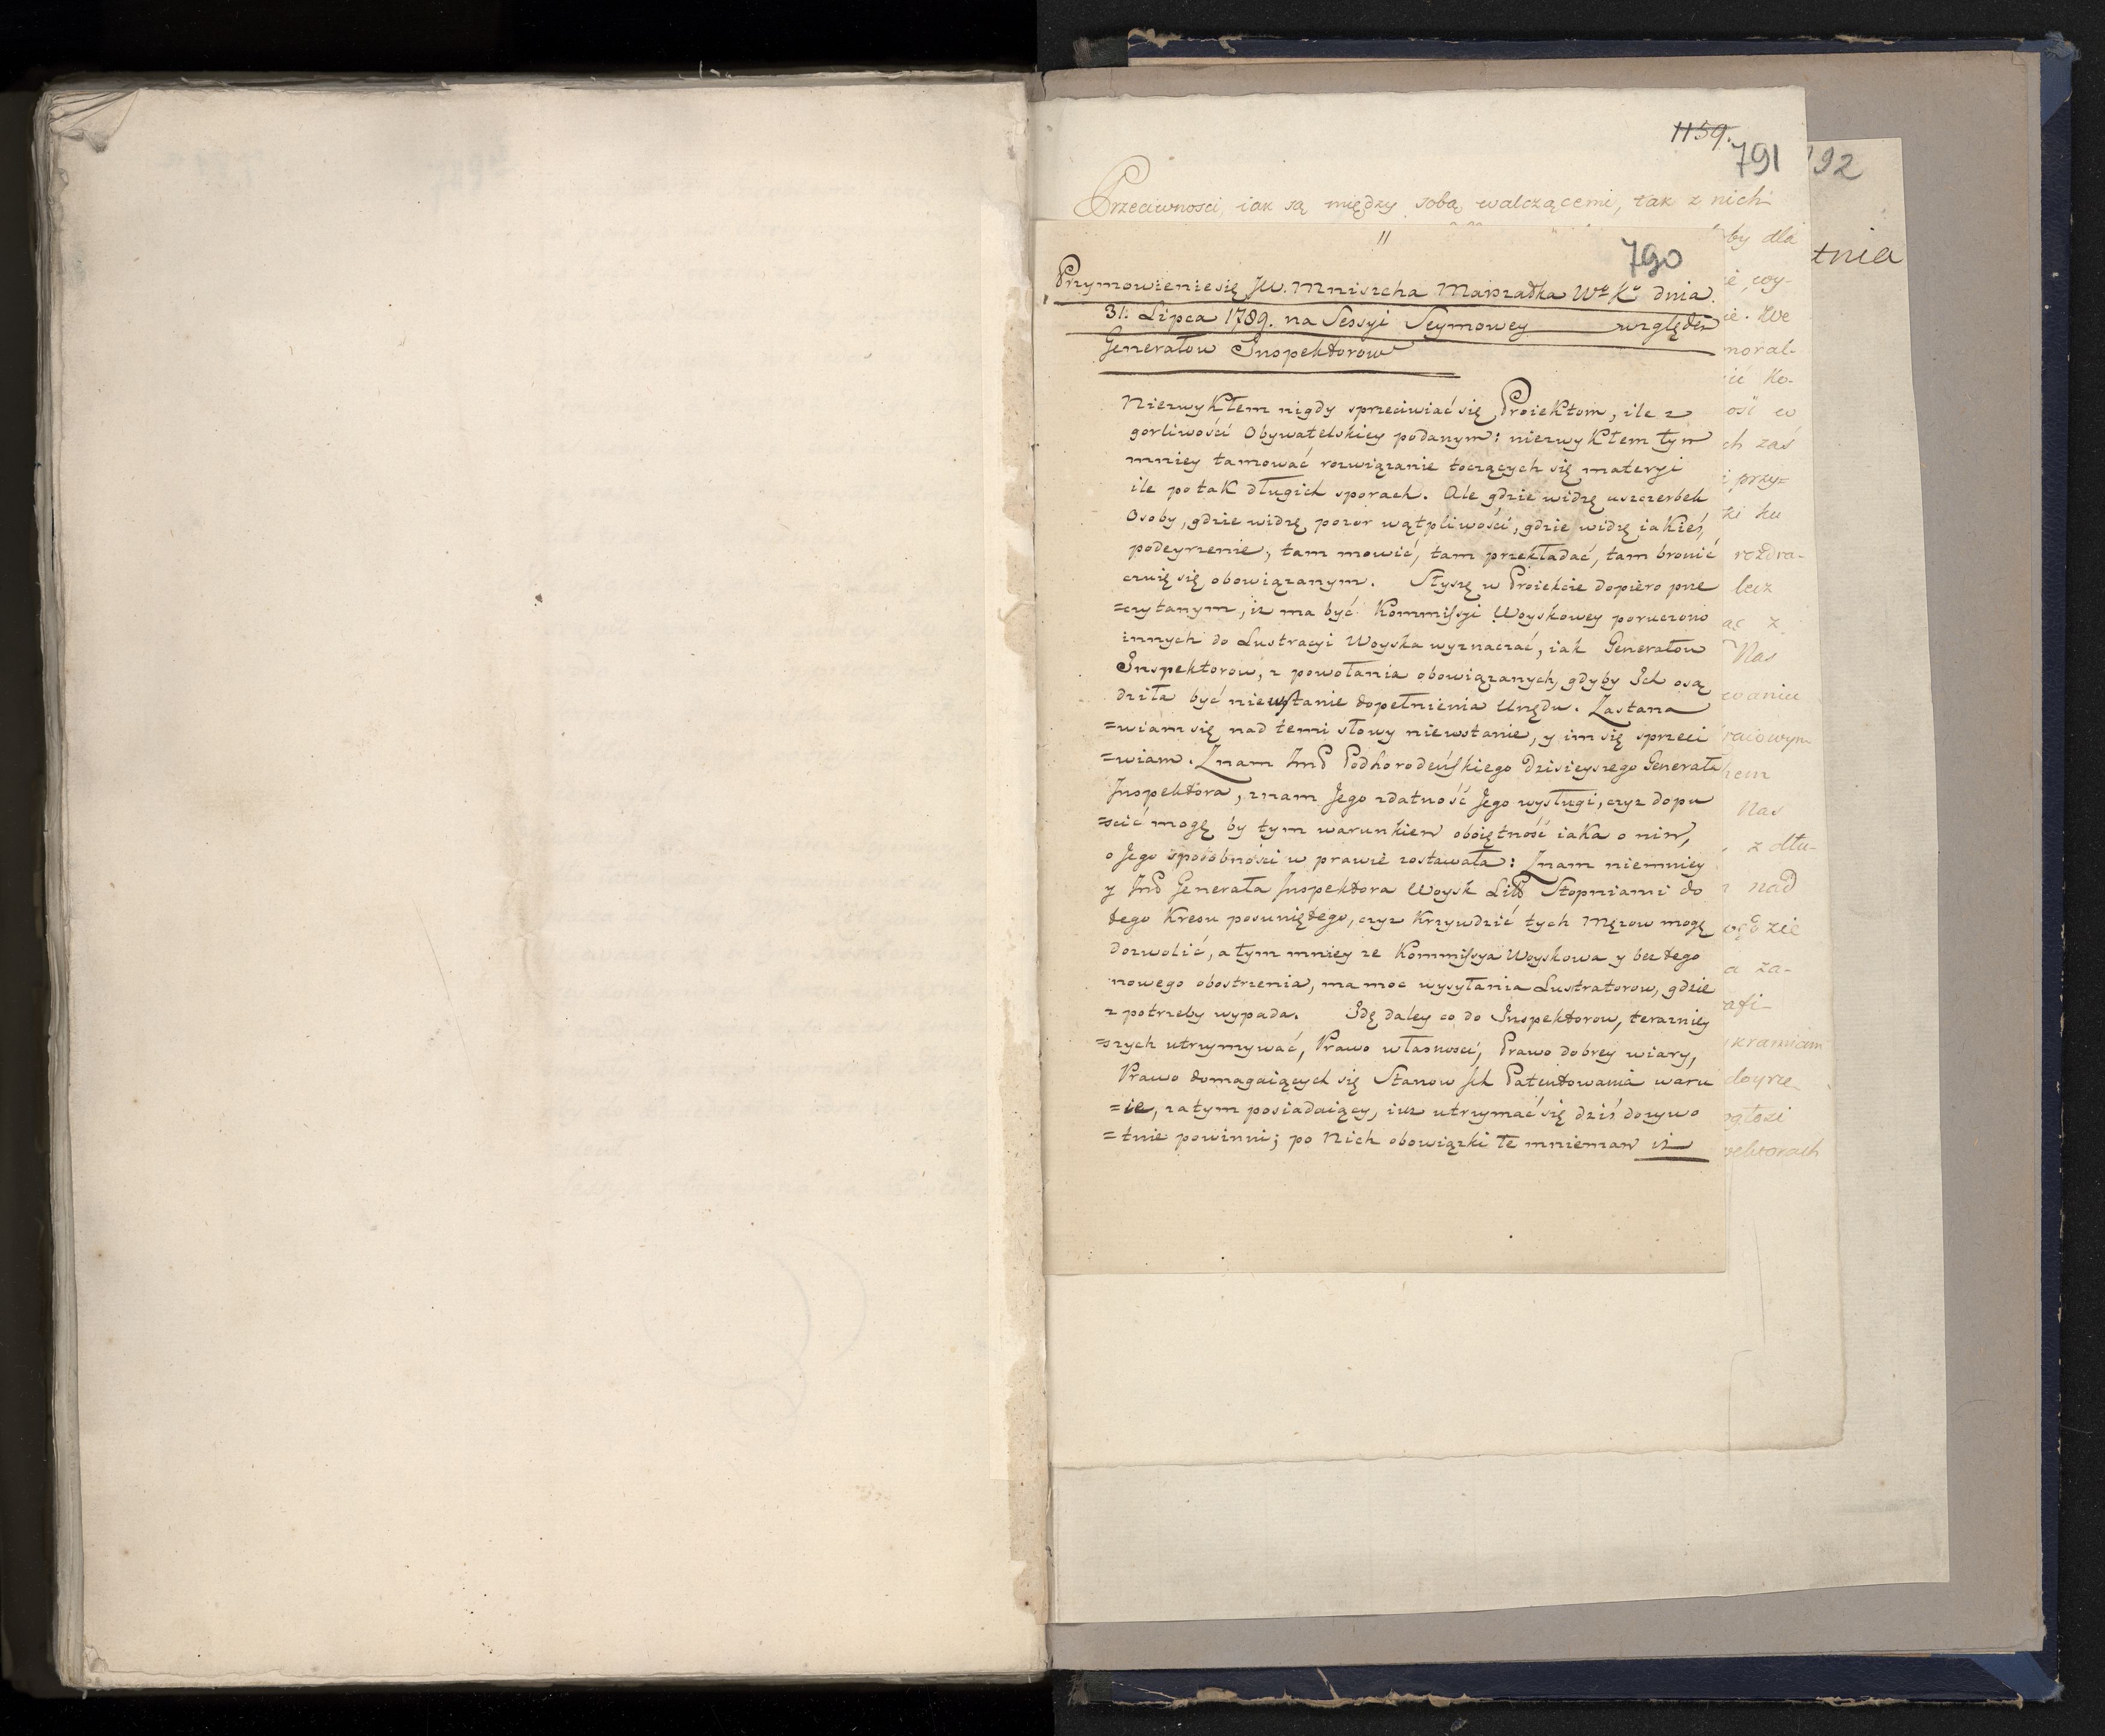 1159.
791
192
Przeciwnosci, iak są między sobą walczącemi, tak z nich
by dla
tnia
790
Przymowienie się JW. Mniszcha Marszałka Wo Ko dnia
31. Lipca 1789. na Sessyi Seymowey względem
Generałow Inspektorow
Niezwykłem nigdy sprzeciwiać się Proiektom, ile z
gorliwości Obywatelskiey podanym: niezwykłem tym
mniey tamować rozwiązanie toczących się materyi
ile po tak długich sporach. Ale gdzie widzę uszczerbek
Osoby, gdzie widzę pozor wątpliwości, gdzie widzę iakieś
podeyrzenie, tam mowić, tam przekładać, tam bronić
czuię się obowiązanym. Słyszę w Proiekcie dopiero prze
=czytanym, iż ma być Kommissyi Woyskowey poruczono
innych do Lustracyi Woyska wyznaczać, iak Generałow
Inspektorow, z powołania obowiązanych, gdyby Ich osą
dziła być niewstanie dopełnienia Urzędu. Zastana
=wiam się nad temi słowy niewstanie, y im się sprzeci
=wiam. Znam Imć Podhorodeńskiego dzisieyszego Generała
Inspektora, znam Jego zdatność Jego wysługi, czyz dopu
=scić mogę by tym warunkiem oboiętność iaka o nim,
o Jego sposobnosci w prawie zostawała: Znam niemniey
y Imć Generała Inspektora Woysk Litt Stopniami do
tego Kresu posuniętego, czyz Krzywdzić tych Męzow mogę
dozwolić, a tym mniey ze Kommissya Woyskowa y bez tego
nowego obostrzenia, ma moc wysyłania Lustratorow, gdzie
z potrzeby wypada. Idę daley co do Inspektorow, terazniey
=szych utrzymywać, Prawo własnosci, Prawo dobrey wiary,
Prawo domagaiących się Stanow Ich Patentowania waru
=ie, zatym posiadaiący, iuz utrzymać się dziś dozywo
=tnie powinni; po Nich obowiązki te mniemam iż
ie, wy-
ie. We
moral-
ić Ko-
ość w
ch zaś
i przy=
ki ku
rozdra-
lecz
ac z
Nas
waniu
raiowym
Nas
z dłu-
nad
za-
kraniam
doyrze-